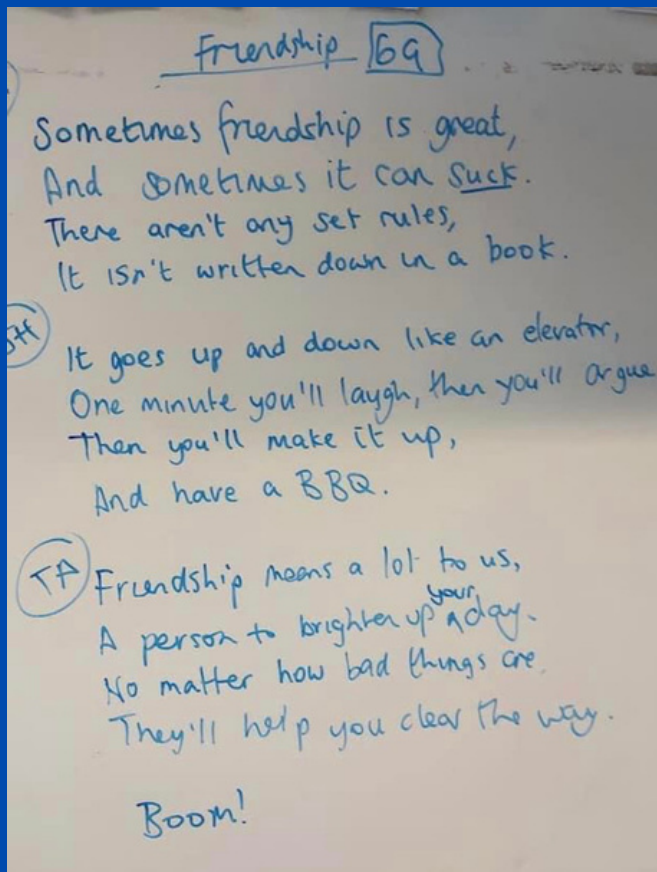 Friendship 6G
Sometimes friendship is great,
And sometimes it can suck.
There aren't any set rules,
It isn't written down in a book.
It goes up and down like an elevator,
One minute you'll laugh, then you'll argue
Then you'll make it up,
And have a BBQ.
TA Friendship means a lot to us,
A person to brighten up your day.
No matter how bad things are.
They'll help you clear the way.
Boom!